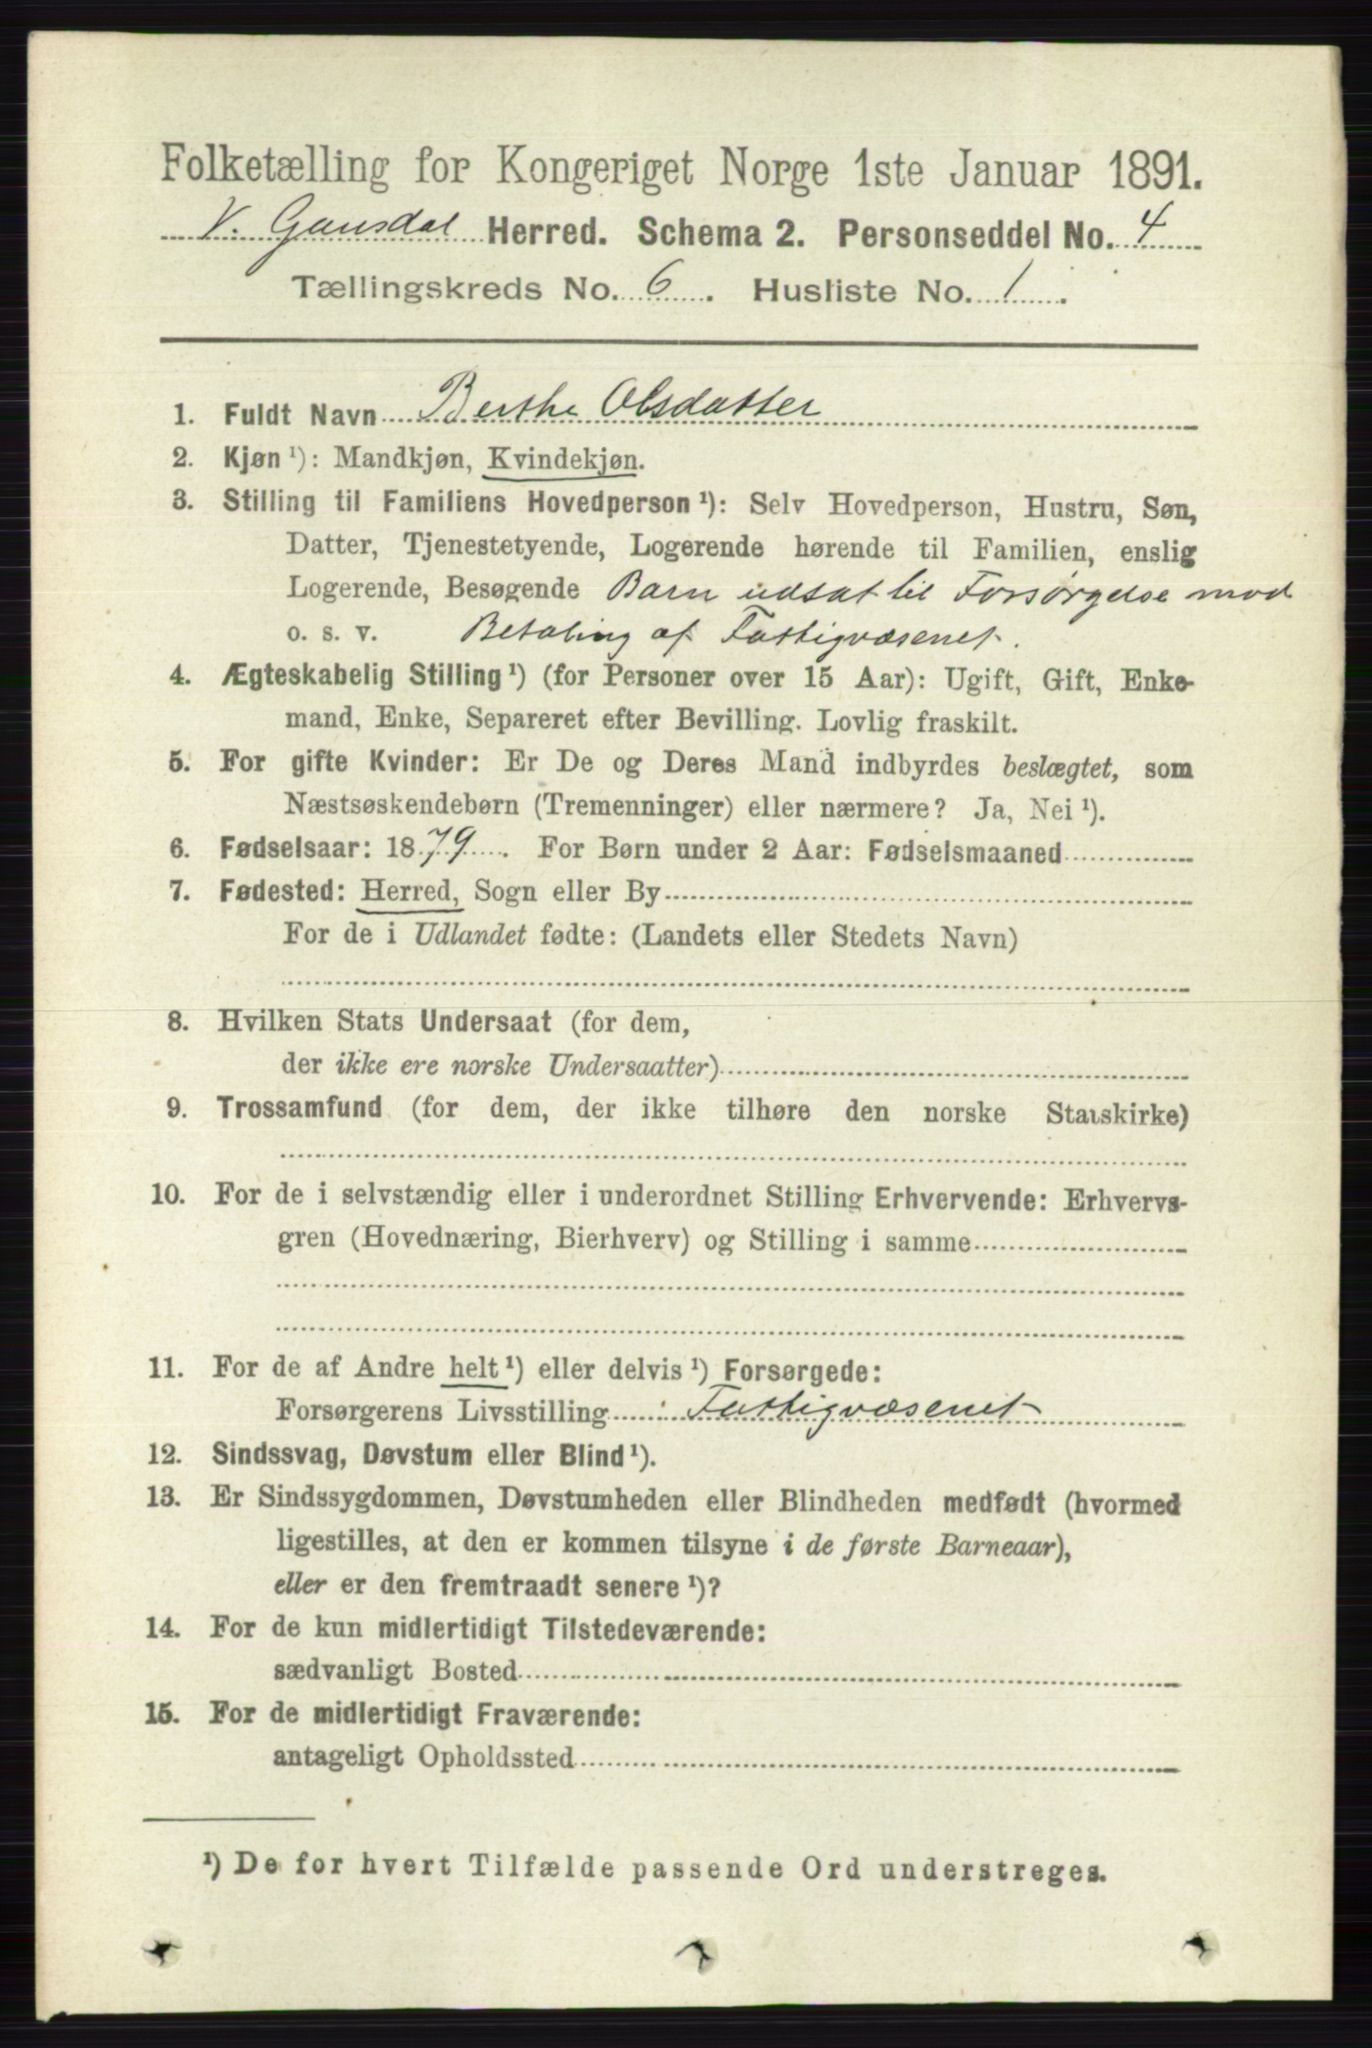 Folketælling for Kongeriget Norge 1ste Januar 1891.
V. Gausdal Herred. Schema 2. Personseddel No. 4
Tællingskreds No. 6. Husliste No. 1.
1. Fuldt Navn Berthe Olsdatter
2. Kjøn¹): Mandkjøn, Kvindekjøn.
3. Stilling til Familiens Hovedperson¹): Selv Hovedperson, Hustru, Søn,
Datter, Tjenestetyende, Logerende hørende til Familien, enslig
Logerende, Besøgende Barn udsat til Forsørgelse mod
o. s. v. Betaling af Fattigvæsenet.
4. Ægteskabelig Stilling¹) (for Personer over 15 Aar): Ugift, Gift, Enke-
mand, Enke, Separeret efter Bevilling. Lovlig fraskilt.
5. For gifte Kvinder: Er De og Deres Mand indbyrdes beslægtet, som
Næstsøskendebørn (Tremenninger) eller nærmere? Ja, Nei¹).
6. Fødselsaar: 1879. For Børn under 2 Aar: Fødselsmaaned
7. Fødested: Herred, Sogn eller By
For de i Udlandet fødte: (Landets eller Stedets Navn)
8. Hvilken Stats Undersaat (for dem,
der ikke ere norske Undersaatter)
9. Trossamfund (for dem, der ikke tilhøre den norske Statskirke)
10. For de i selvstændig eller i underordnet Stilling Erhvervende: Erhvervs-
gren (Hovednæring, Bierhverv) og Stilling i samme
11. For de af Andre helt¹) eller delvis¹) Forsørgede:
Forsørgerens Livsstilling Fattigvæsenet
12. Sindssvag, Døvstum eller Blind¹).
13. Er Sindssygdommen, Døvstumheden eller Blindheden medfødt (hvormed
ligestilles, at den er kommen tilsyne i de første Barneaar),
eller er den fremtraadt senere¹)?
14. For de kun midlertidigt Tilstedeværende:
sædvanligt Bosted
15. For de midlertidigt Fraværende:
antageligt Opholdssted
¹) De for hvert Tilfælde passende Ord understreges.